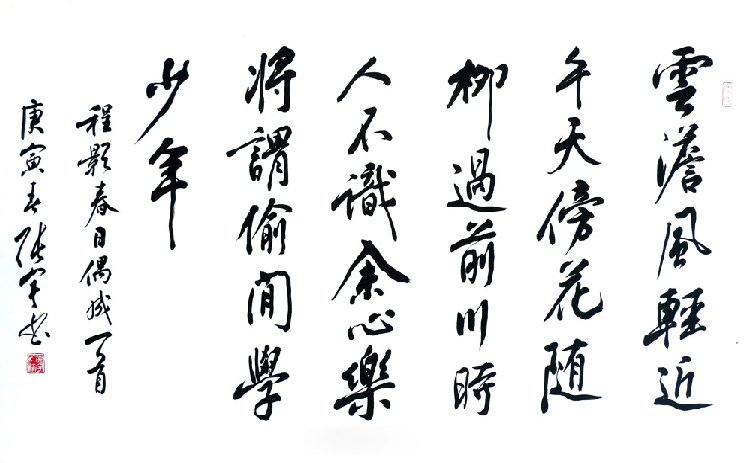 雲澹風輕近
午天傍花随
柳過前川時
人不識余心樂
將謂偷閒學
少年
程影春日偶成一首
庚寅春張宇書